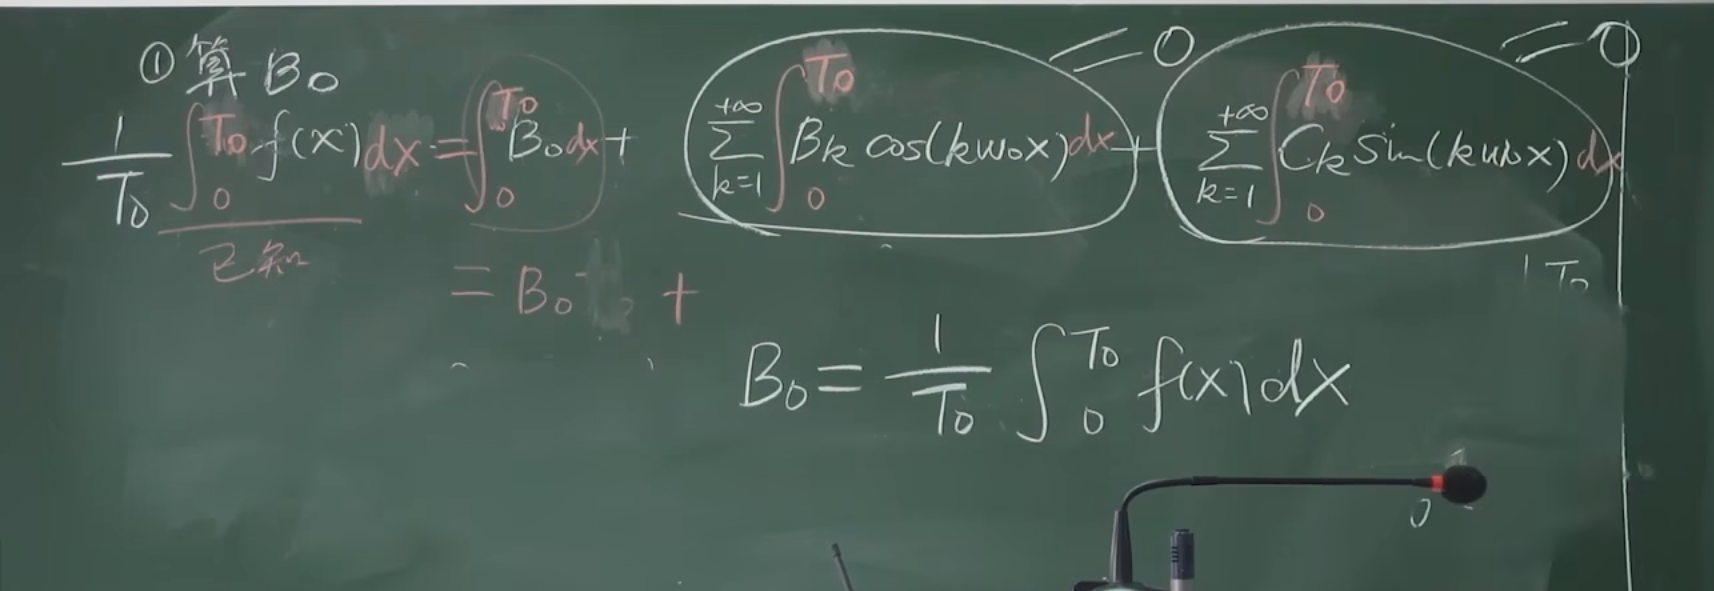 ① 算 B₀
1/T₀ ∫₀^T₀ f(x)dx = ∫₀^T₀ B₀dx + ∑_{k=1}^{+∞} ∫₀^T₀ Bₖ cos(kω₀x)dx + ∑_{k=1}^{+∞} ∫₀^T₀ Cₖ sin(kω₀x)dx
= 0
= 0
已知
= B₀ +
B₀ = 1/T₀ ∫₀^T₀ f(x)dx